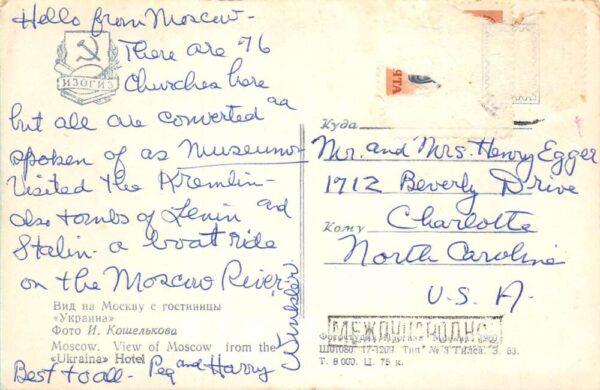 Hello from Moscow-
There are 76
Churches here
but all are converted and
spoken of as museums-
Visited the Kremlin-
also tombs of Lenin and
Stalin - a boat ride
on the Moscow River,
ИЗОГИЗ
Вид на Москву с гостиницы
«Украина»
Фото И. Кошелькова
Moscow. View of Moscow from the
«Ukraina» Hotel
Best to all - Peg and Harry
Winkler
Куда
Mr. and Mrs. Henry Egger
1712 Beverly Drive
Кому
Charlotte
North Carolina
U.S.A.
МЕЖДУНАРОДНОЕ
Ш10080 17-1209. Тип. № 3 Гилса. З. 83.
Т. 8 000. Ц. 75 к.